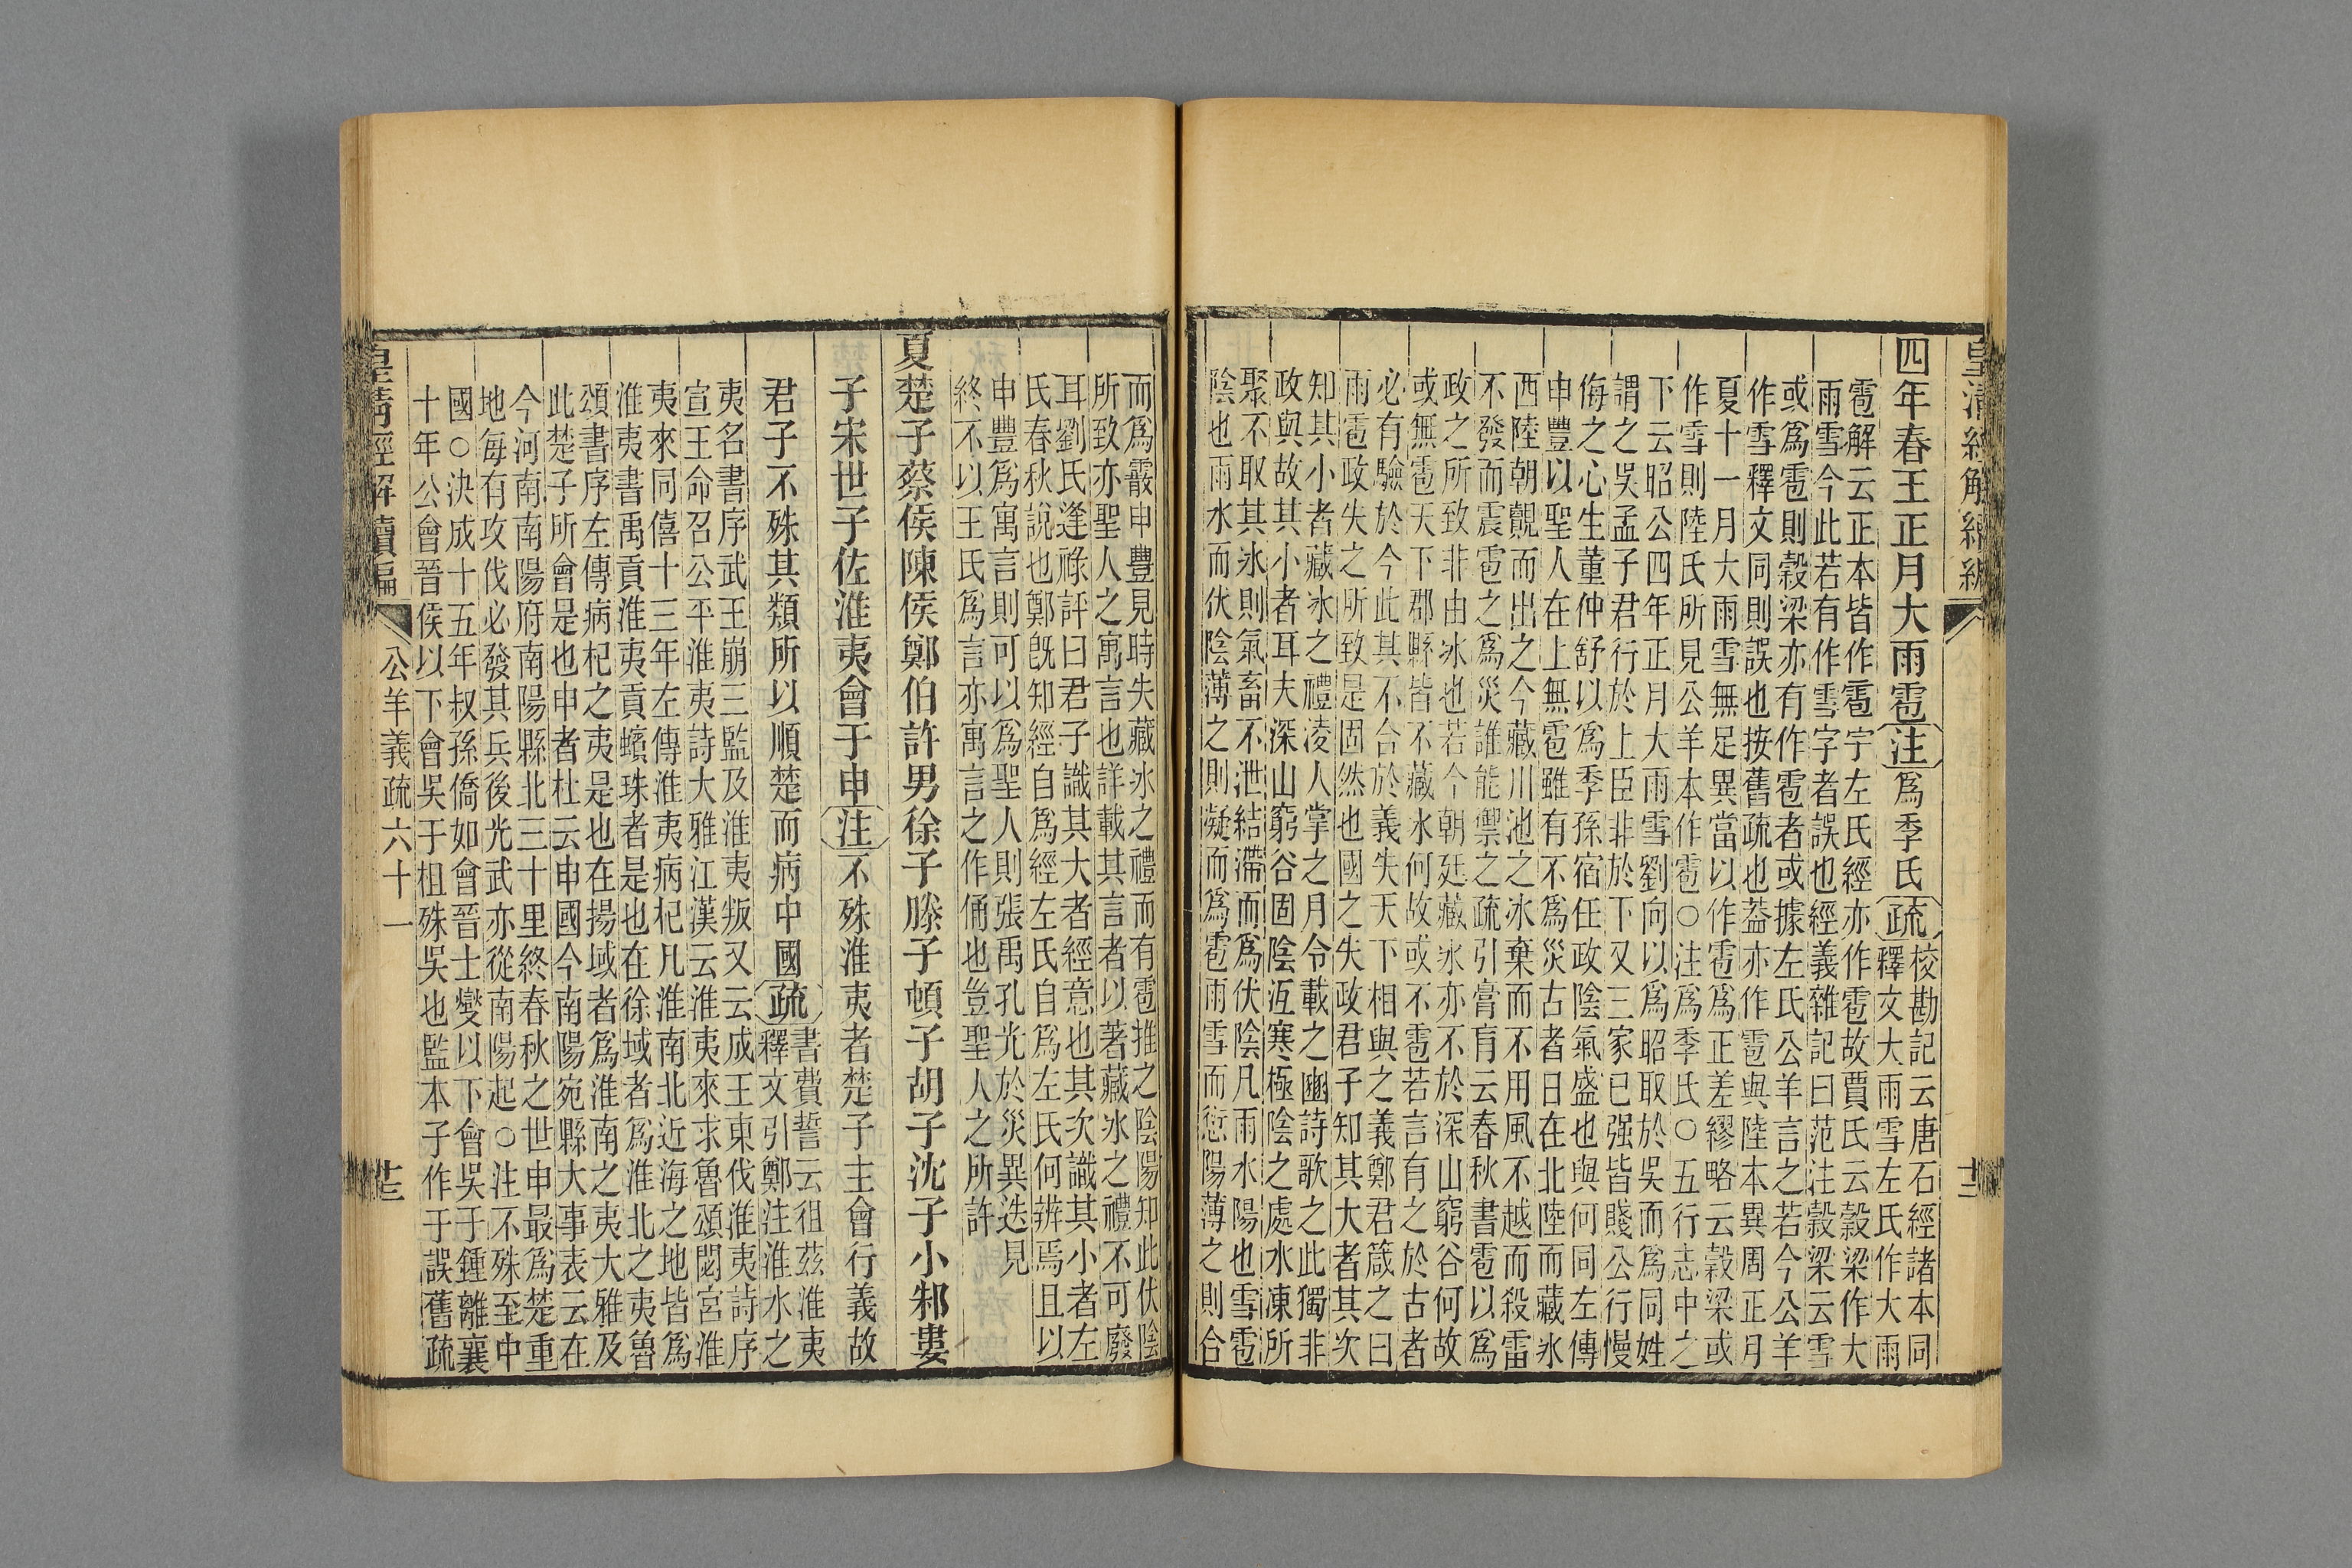 皇清經解續編
十二
四年春王正月大雨雹注爲季氏疏校勘記云唐石經諸本同
釋文大雨雪左氏作大雨
雹解云正本皆作雹字左氏經亦作雹故賈氏云穀梁作大
雨雪今此若有作雪字者誤也經義雜記曰范注穀梁云雪
或爲雹則穀梁亦有作雹者或據左氏公羊言之若今公羊
作雪釋文同則誤也按舊疏也葢亦作雹與陸本異周正月
夏十一月大雨雪無足異當以作雹爲正差繆略云穀梁或
作雪則陸氏所見公羊本作雹○注爲季氏○五行志中之
下云昭公四年正月大雨雪劉向以爲昭取於吳而爲同姓
謂之吳孟子君行於上臣非於下又三家已强皆賤公行慢
侮之心生董仲舒以爲季孫宿任政陰氣盛也與何同左傳
申豐以聖人在上無雹雖有不爲災古者日在北陸而藏冰
西陸朝覿而出之今藏川池之冰棄而不用風不越而殺雷
不發而震雹之爲災誰能禦之疏引膏肓云春秋書雹以爲
政之所致非由冰也若今朝廷藏冰亦不於深山窮谷何故
或無雹天下郡縣皆不藏冰何故或不雹若言有之於古者
必有驗於今此其不合於義失天下相與之義鄭君箴之曰
雨雹政失之所致是固然也國之失政君子知其大者其次
知其小者藏冰之禮凌人掌之月令載之豳詩歌之此獨非
政與故其小者耳夫深山窮谷固陰沍寒極陰之處水凍所
聚不取其冰則氣畜不泄結滯而爲伏陰凡雨水陽也雪雹
陰也雨水而伏陰薄之則凝而爲雹雨雪而愆陽薄之則合
而爲霰申豐見時失藏冰之禮而有雹推之陰陽知此伏陰
所致亦聖人之寓言也詳載其言者以著藏冰之禮不可廢
耳劉氏逢祿評曰君子識其大者經意也其次識其小者左
氏春秋說也鄭旣知經自爲經左氏自爲左氏何辨焉且以
申豐爲寓言則可以爲聖人則張禹孔光於災異迭見
終不以王氏爲言亦寓言之作俑也豈聖人之所許
夏楚子蔡侯陳侯鄭伯許男徐子滕子頓子胡子沈子小邾婁
子宋世子佐淮夷會于申注不殊淮夷者楚子主會行義故
君子不殊其類所以順楚而病中國疏書費誓云徂茲淮夷
釋文引鄭注淮水之
夷名書序武王崩三監及淮夷叛又云成王東伐淮夷詩序
宣王命召公平淮夷詩大雅江漢云淮夷來求魯頌閟宮淮
夷來同僖十三年左傳淮夷病杞凡淮南北近海之地皆爲
淮夷書禹貢淮夷貢蠙珠者是也在徐域者爲淮北之夷魯
頌書序左傳病杞之夷是也在揚域者爲淮南之夷大雅及
此楚子所會是也申者杜云申國今南陽宛縣大事表云在
今河南南陽府南陽縣北三十里終春秋之世申最爲楚重
地每有攻伐必發其兵後光武亦從南陽起○注不殊至中
國○決成十五年叔孫僑如會晉士燮以下會吳于鍾離襄
十年公會晉侯以下會吳于柤殊吳也監本子作于誤舊疏
皇清經解續編
公羊義疏六十一
十二